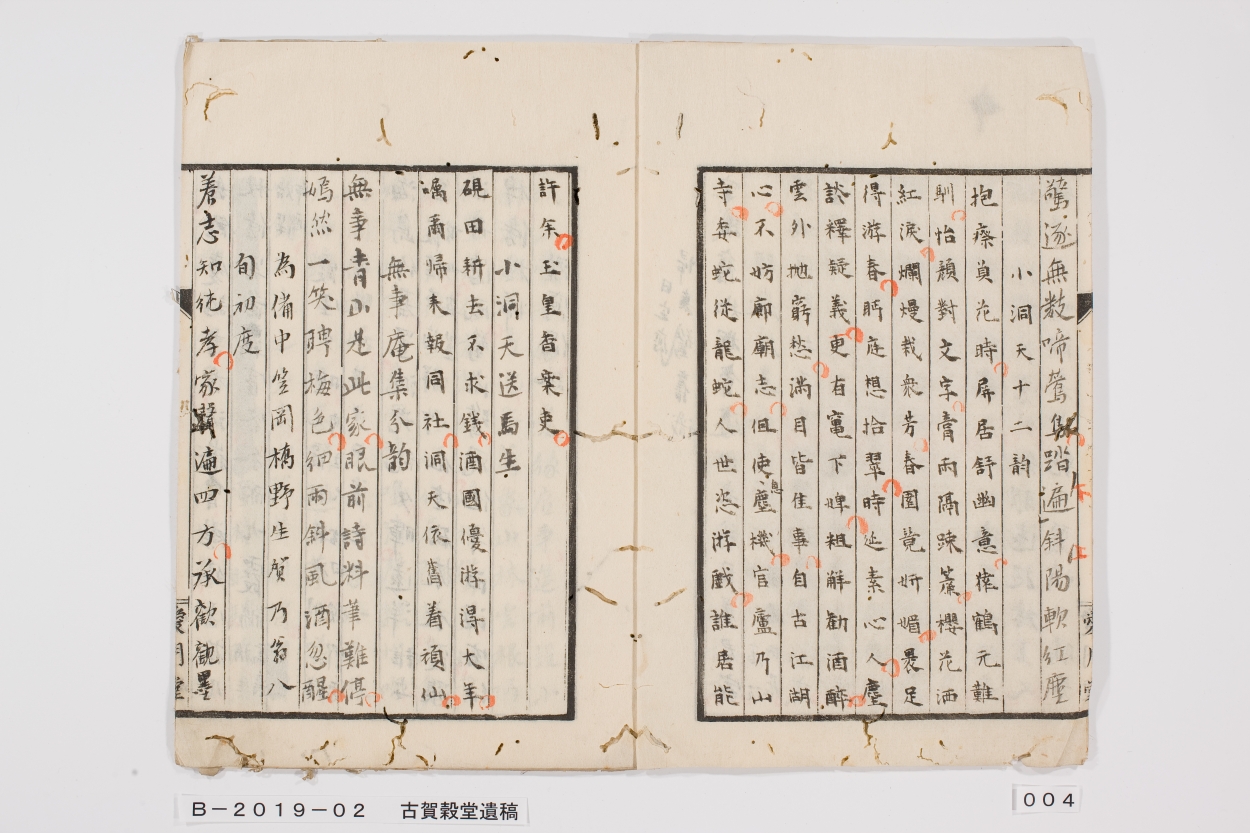 驚逐無数啼鶯集踏遍斜陽軟紅塵
小洞天十二韵
抱療負花時屏居舒幽意猿鶴元難
馴怡顔對文字膏雨隔疎簾櫻花洒
紅涙爛熳栽衆芳春園競妍媚畏足
得游春眄庭想拾翠時延素心人麈
談釋疑義更有竈下婢粗解勧酒酔
雲外抛窮愁満目皆佳事自古江湖
心不妨廊廟志但使塵機息官廬乃山
寺委蛇従龍蛇人世恣游戯誰居能
許余玉皇香案吏
小洞天送馬生
硯田耕去不求銭酒國優游得大年
嘱甫帰来報同社洞天依舊着頑仙
無事庵集分韵
無事青山是此家眼前詩料筆難停
嫣然一笑聘梅色細雨斜風酒忽醒
為備中笠岡橋野生賀乃翁八
旬初度
養志知純孝家醫遍四方承歓歓墨
愛月堂
B－2019－02　古賀穀堂遺稿
004